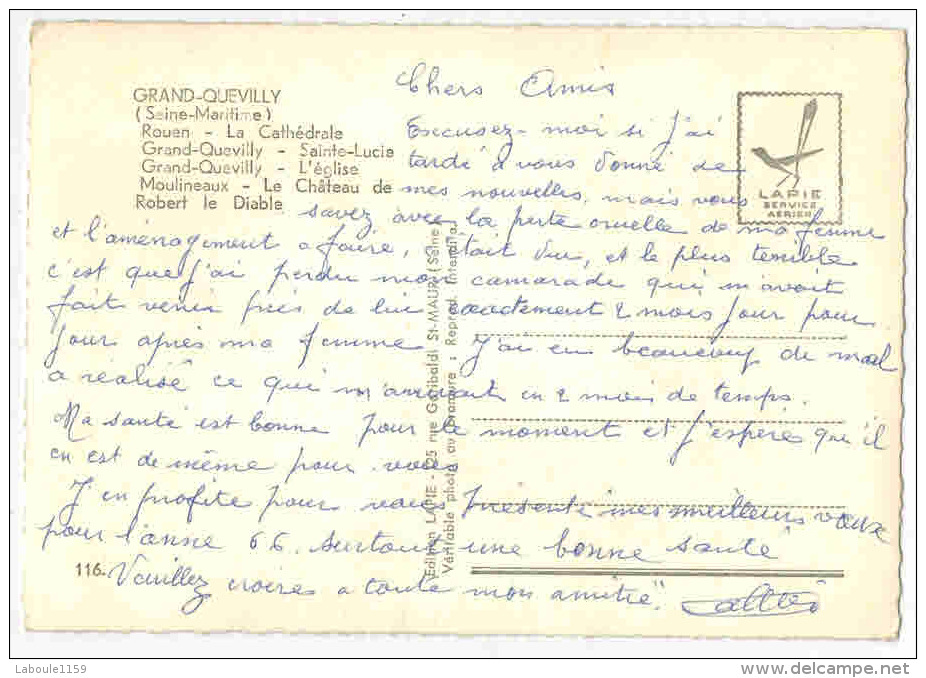 GRAND-QUEVILLY
(Seine-Maritime)
Rouen - La Cathédrale
Grand-Quevilly - Sainte-Lucie
Grand-Quevilly - L'église
Moulineaux - Le Château de
Robert le Diable
LAPIE
SERVICE
AERIEN
Chers Amis
Excusez-moi si j'ai
tardé à vous donné de
mes nouvelles, mais vous
savez avec la perte cruelle de ma femme
et l'aménagement a faire, était dur, et le plus terrible
c'est que j'ai perdu mon camarade qui m'avait
fait venir près de lui exactement 2 mois jour pour
jour après ma femme J'ai eu beaucoup de mal
a réalisé ce qui m'arrivait en 2 mois de temps.
Ma santé est bonne pour le moment et j'espère qu'il
en est de même pour vous
J'en profite pour vous présenté mes meilleurs vœux
pour l'anne 66. surtout une bonne santé
Veuillez croire a toute mon amitié"
Edition LAPIE - 125 rue Garibaldi St-MAUR (Seine)
Véritable photo au bromure : Reprod. Interdite
116.
Laboule1159
www.delcampe.net